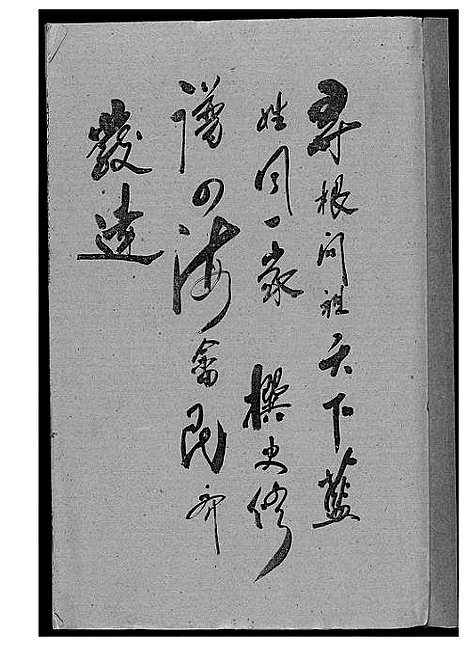 寻根问祖天下蓝
姓同一家 撰史修
谱四海畲民齐
發达